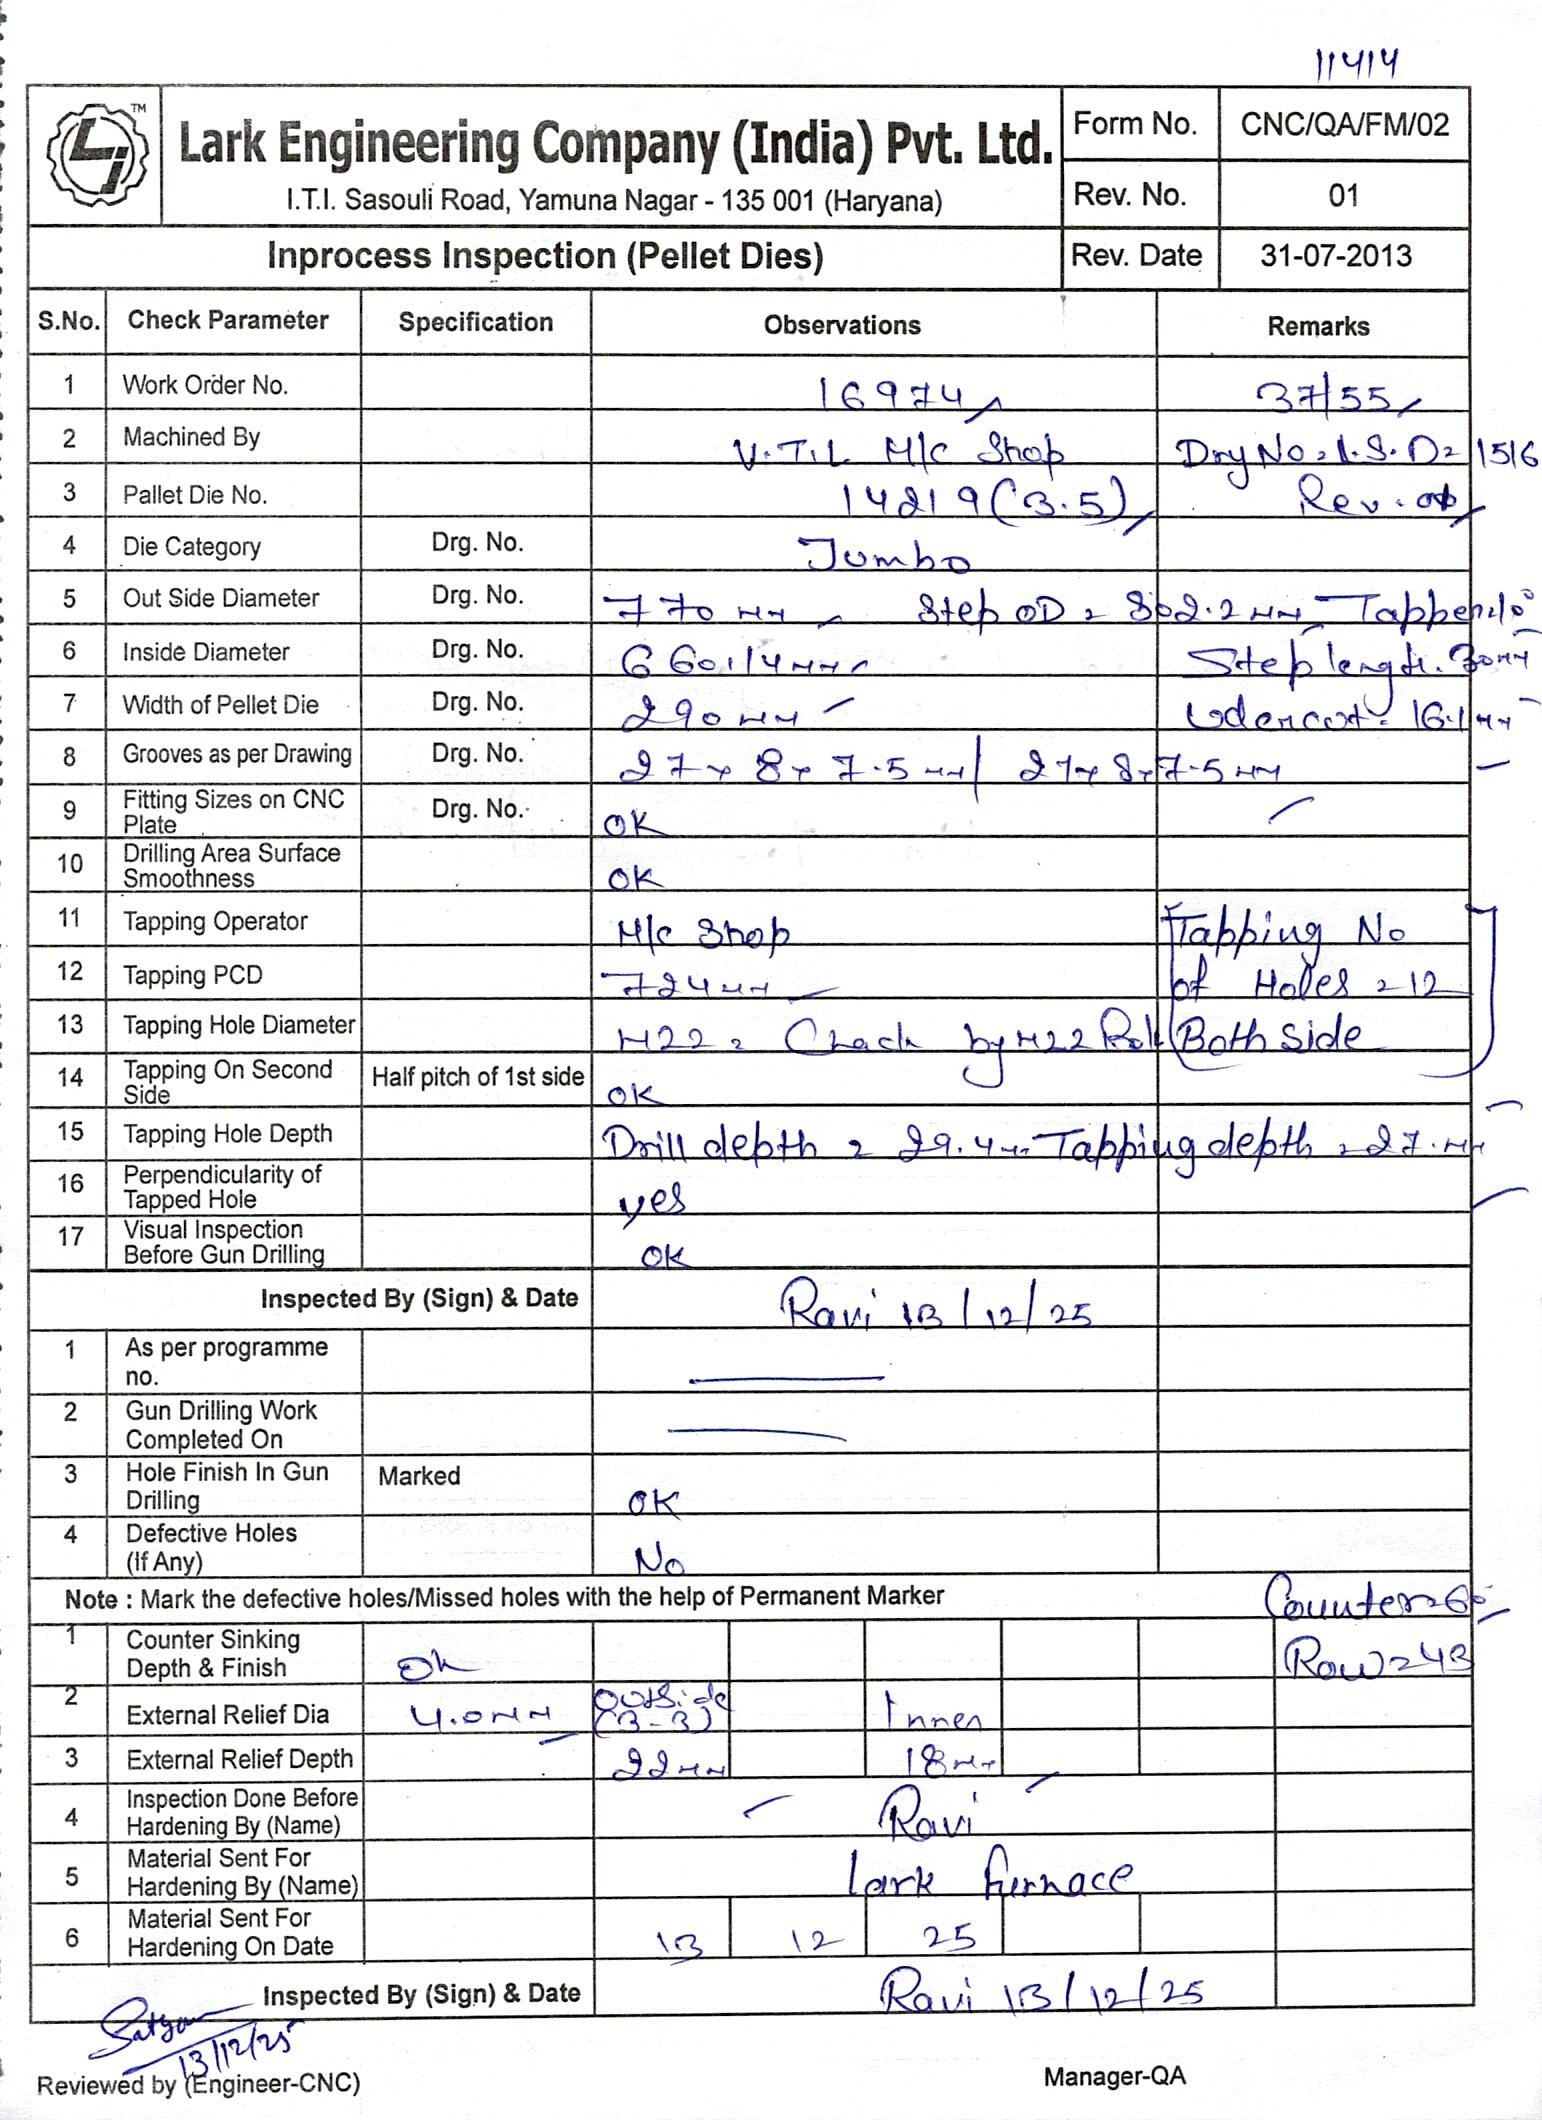 11414
TM
Lark Engineering Company (India) Pvt. Ltd.
I.T.I. Sasouli Road, Yamuna Nagar - 135 001 (Haryana)
Form No. CNC/QA/FM/02
Rev. No. 01
Inprocess Inspection (Pellet Dies) Rev. Date 31-07-2013
S.No. Check Parameter Specification Observations Remarks
1 Work Order No. 16974 37/55
2 Machined By V.T.L M/c Shop Drg No = L.S.D= 1516
3 Pallet Die No. 14219 (3.5) Rev.
4 Die Category Drg. No. Jumbo
5 Out Side Diameter Drg. No. 770 mm Step OD = 802.2 mm Tapper 10°
6 Inside Diameter Drg. No. 660.14mm Step length. 30mm
7 Width of Pellet Die Drg. No. 290 mm Udercut = 16.1mm
8 Grooves as per Drawing Drg. No. 27 x 8 x 7.5 mm / 27 x 8 x 7.5 mm
9 Fitting Sizes on CNC Plate Drg. No. OK
10 Drilling Area Surface Smoothness OK
11 Tapping Operator M/c Shop Tapping No
12 Tapping PCD 724 mm of Holes = 12
13 Tapping Hole Diameter M22 = Chack by M22 Bolt Both side
14 Tapping On Second Side Half pitch of 1st side OK
15 Tapping Hole Depth Drill depth = 29.4mm Tapping depth = 27.mm
16 Perpendicularity of Tapped Hole yes
17 Visual Inspection Before Gun Drilling OK
Inspected By (Sign) & Date Ravi 13/12/25
1 As per programme no.
2 Gun Drilling Work Completed On
3 Hole Finish In Gun Drilling Marked OK
4 Defective Holes (If Any) No
Note : Mark the defective holes/Missed holes with the help of Permanent Marker Counter=60°
1 Counter Sinking Depth & Finish Ok Row=43
2 External Relief Dia 4.0mm Outside (3-3) Inner
3 External Relief Depth 22mm 18mm
4 Inspection Done Before Hardening By (Name) Ravi
5 Material Sent For Hardening By (Name) Lark furnace
6 Material Sent For Hardening On Date 13 12 25
Inspected By (Sign) & Date Ravi 13/12/25
Satyam
13/12/25
Reviewed by (Engineer-CNC) Manager-QA